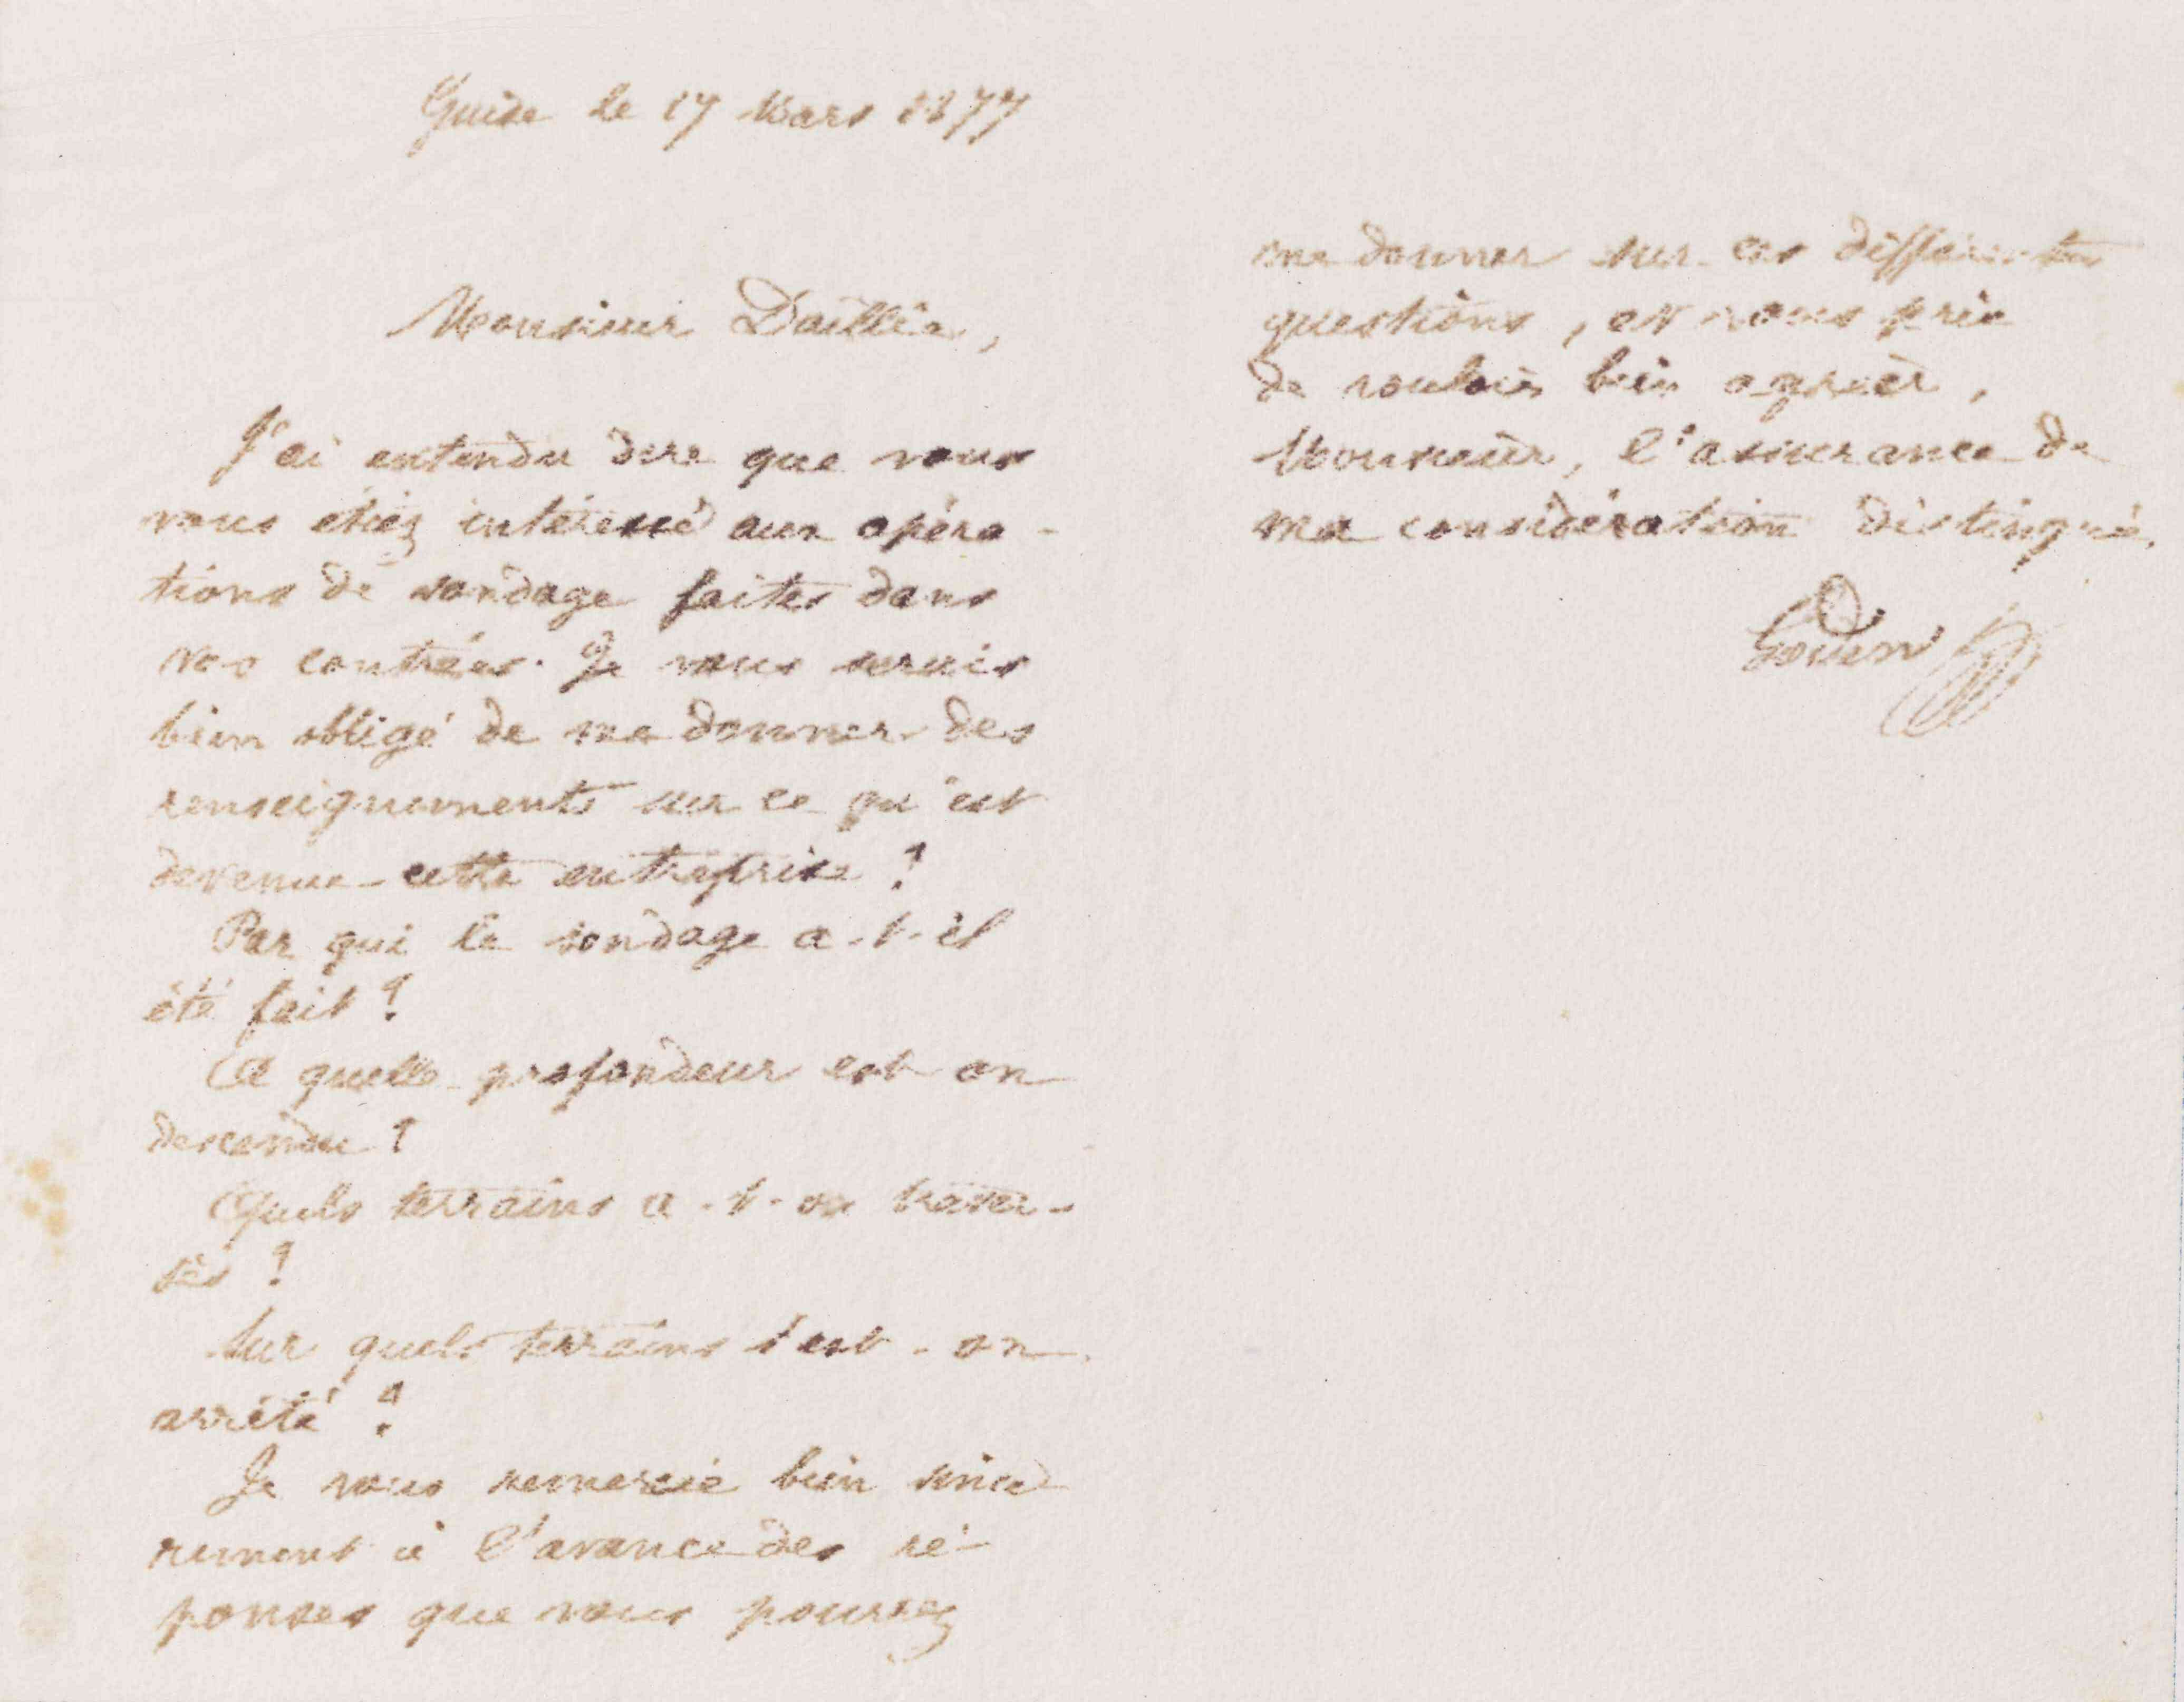 Guise le 17 Mars 1877
Monsieur Daillée,
J'ai entendu dire que vous
vous étiez intéressé aux opéra-
tions de sondage faites dans
vos contrées. Je vous serais
bien obligé de me donner des
renseignements sur ce qu'est
devenue cette entreprise ?
Par qui le sondage a-t-il
été fait ?
A quelle profondeur est on
descendu ?
Quels terrains a-t-on traver-
sés ?
Sur quels terrains s'est-on
arrêté ?
Je vous remercie bien sincè
rement à l'avance des ré-
ponses que vous pourrez
me donner sur ces différentes
questions, et vous prie
de vouloir bien agréer,
Monsieur, l'assurance de
ma considération distinguée.
Godin